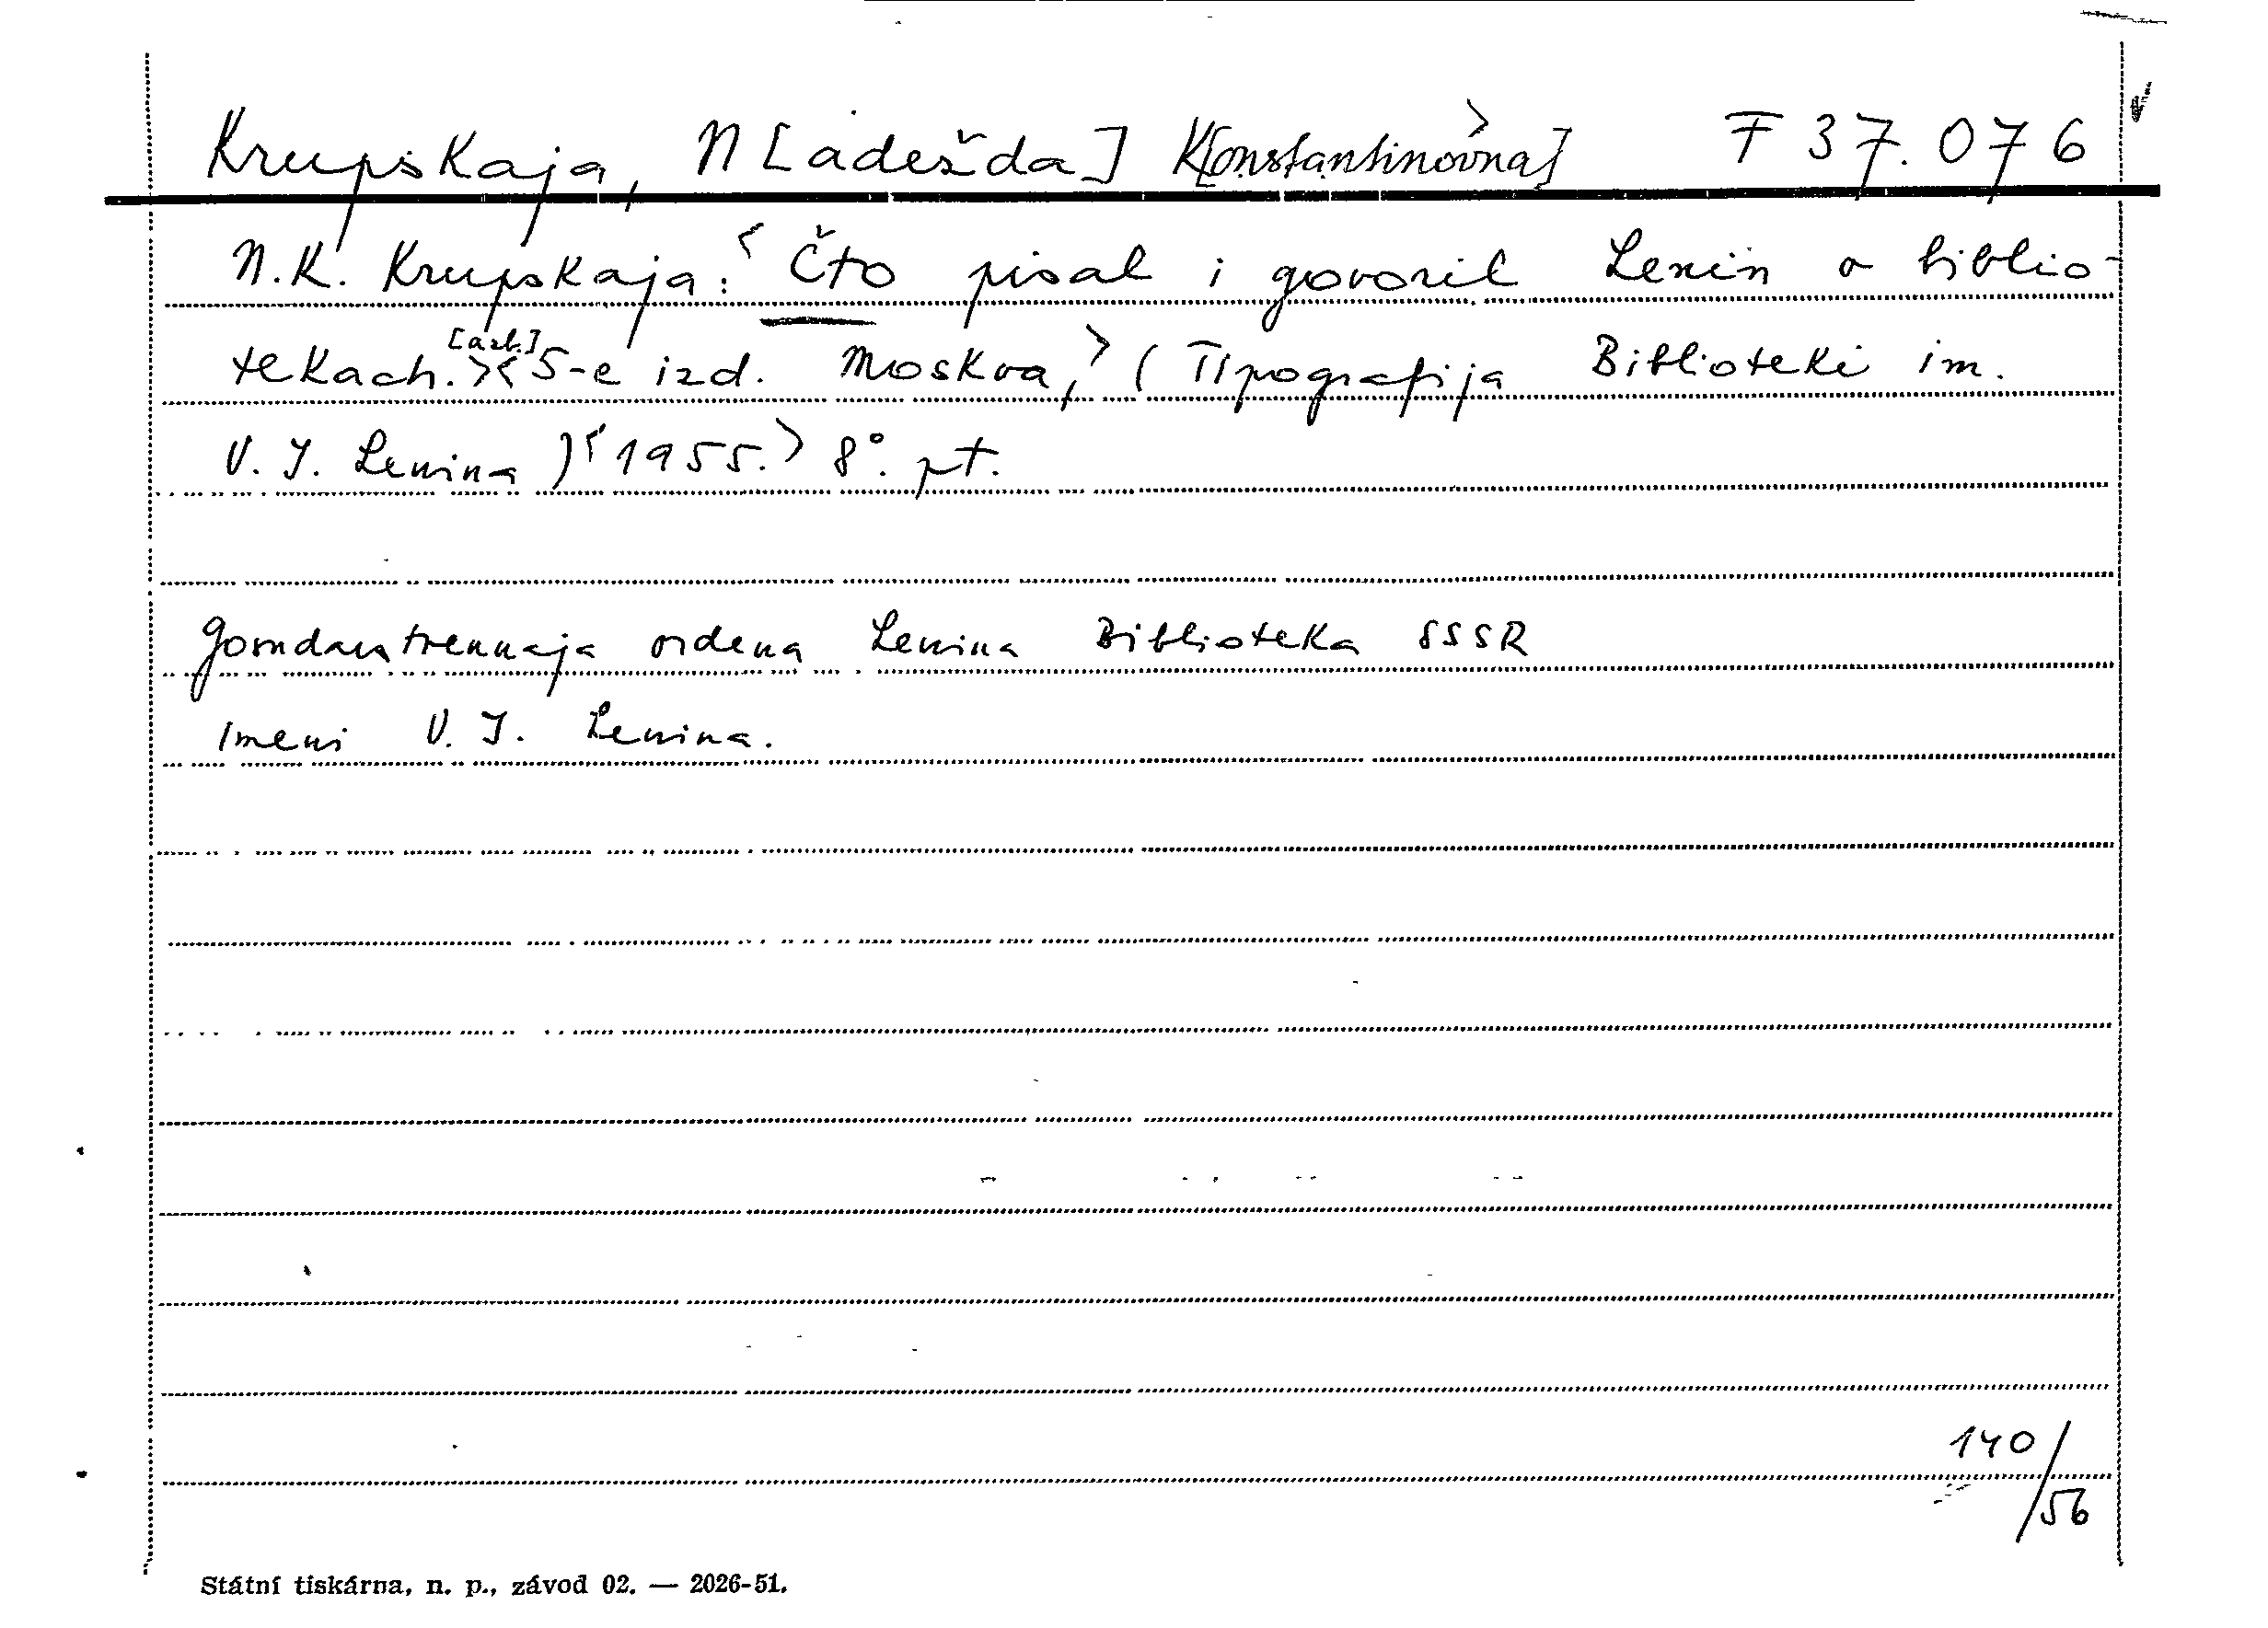 Krupskaja, N[aděžda] K[onstantinovna]> F 37.076
N.K. Krupskaja: <Čto pisal i govoril Lenin o biblio-
tekach.> [azb.] <5-e izd. Moskva,> (Tipografija Biblioteki im.
V. I. Lenina) <1955.> 8°. pt.
Gosudarstvennaja ordena Lenina Biblioteka SSSR
imeni V. I. Lenina.
140/56
Státní tiskárna, n. p., závod 02. — 2026-51.